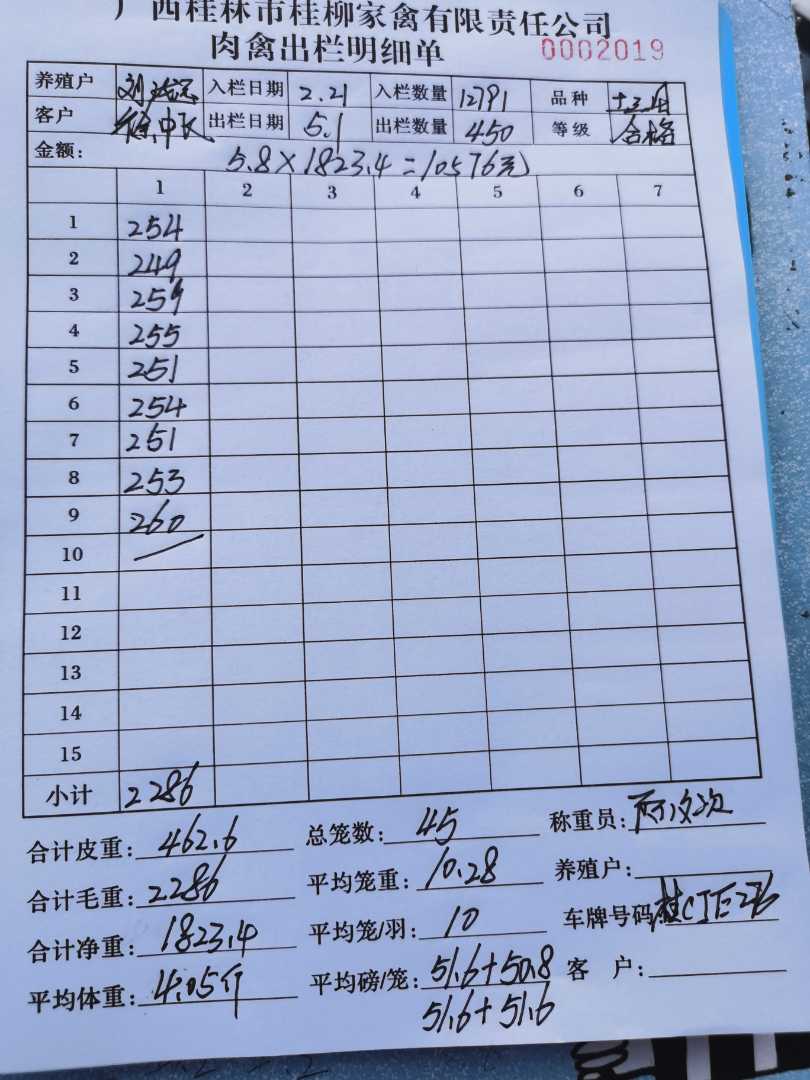 广西桂林市桂柳家禽有限责任公司
肉禽出栏明细单 0002019
养殖户 入栏日期 2.21 入栏数量 12791 品种
客户 出栏日期 5.1 出栏数量 450 等级 合格
金额: 5.8×1823.4=10576元
1 2 3 4 5 6 7
1 254
2 249
3 259
4 255
5 251
6 254
7 251
8 253
9 260
10
11
12
13
14
15
小计 2286
合计皮重: 462.6 总笼数: 45 称重员:
合计毛重: 2286 平均笼重: 10.28 养殖户:
合计净重: 1823.4 平均笼/羽: 10 车牌号码
平均体重: 4.05斤 平均磅/笼: 51.6+50.8 客 户:
51.6+51.6